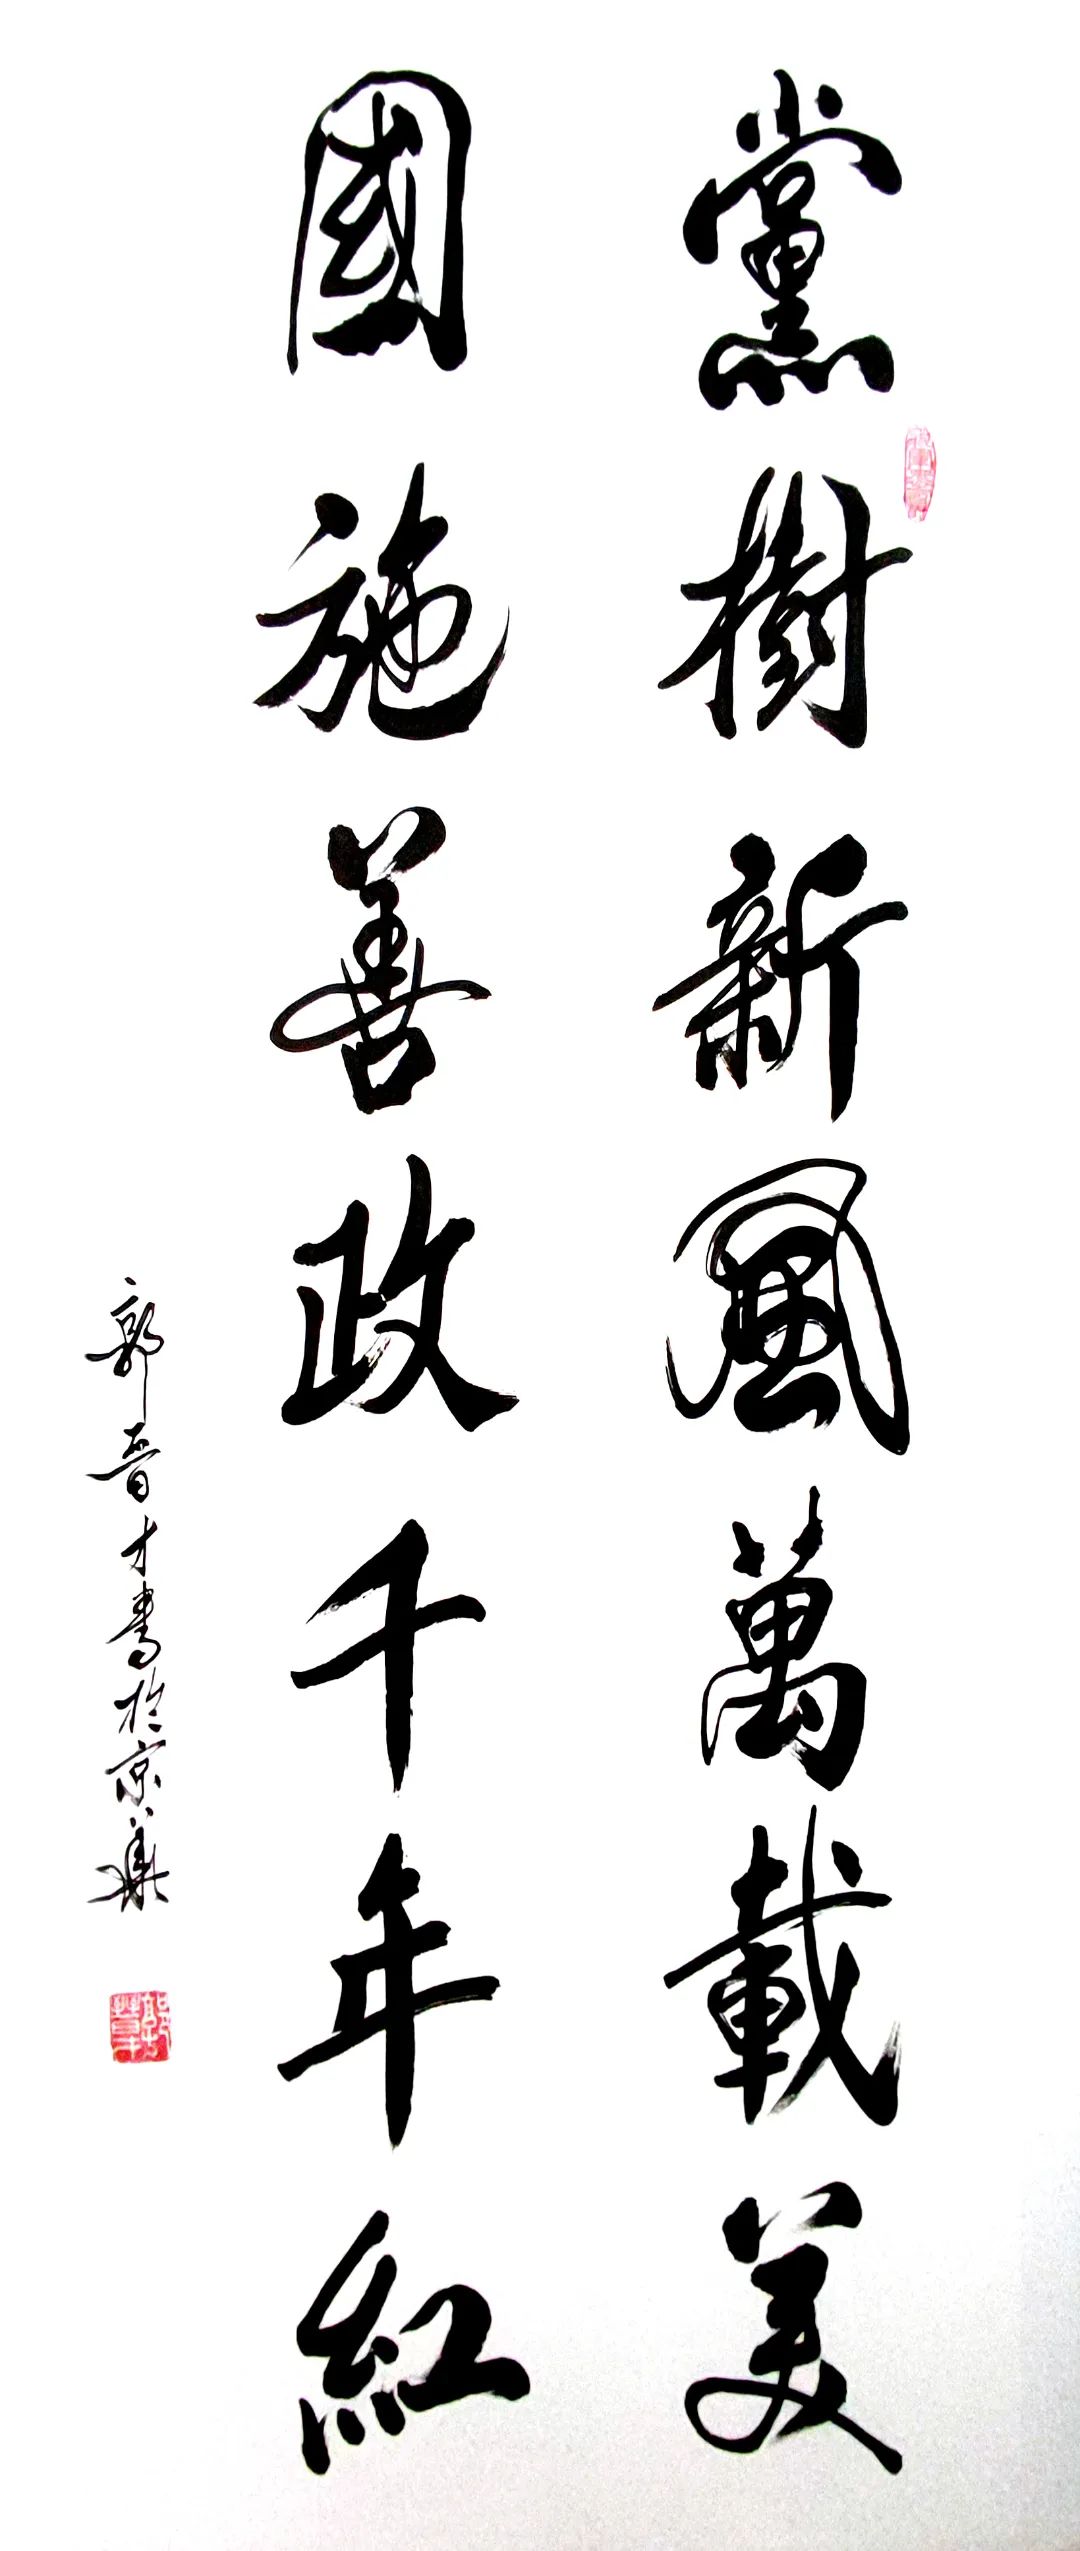 黨樹新風萬載美
國施善政千年紅
郭晋才書於京華